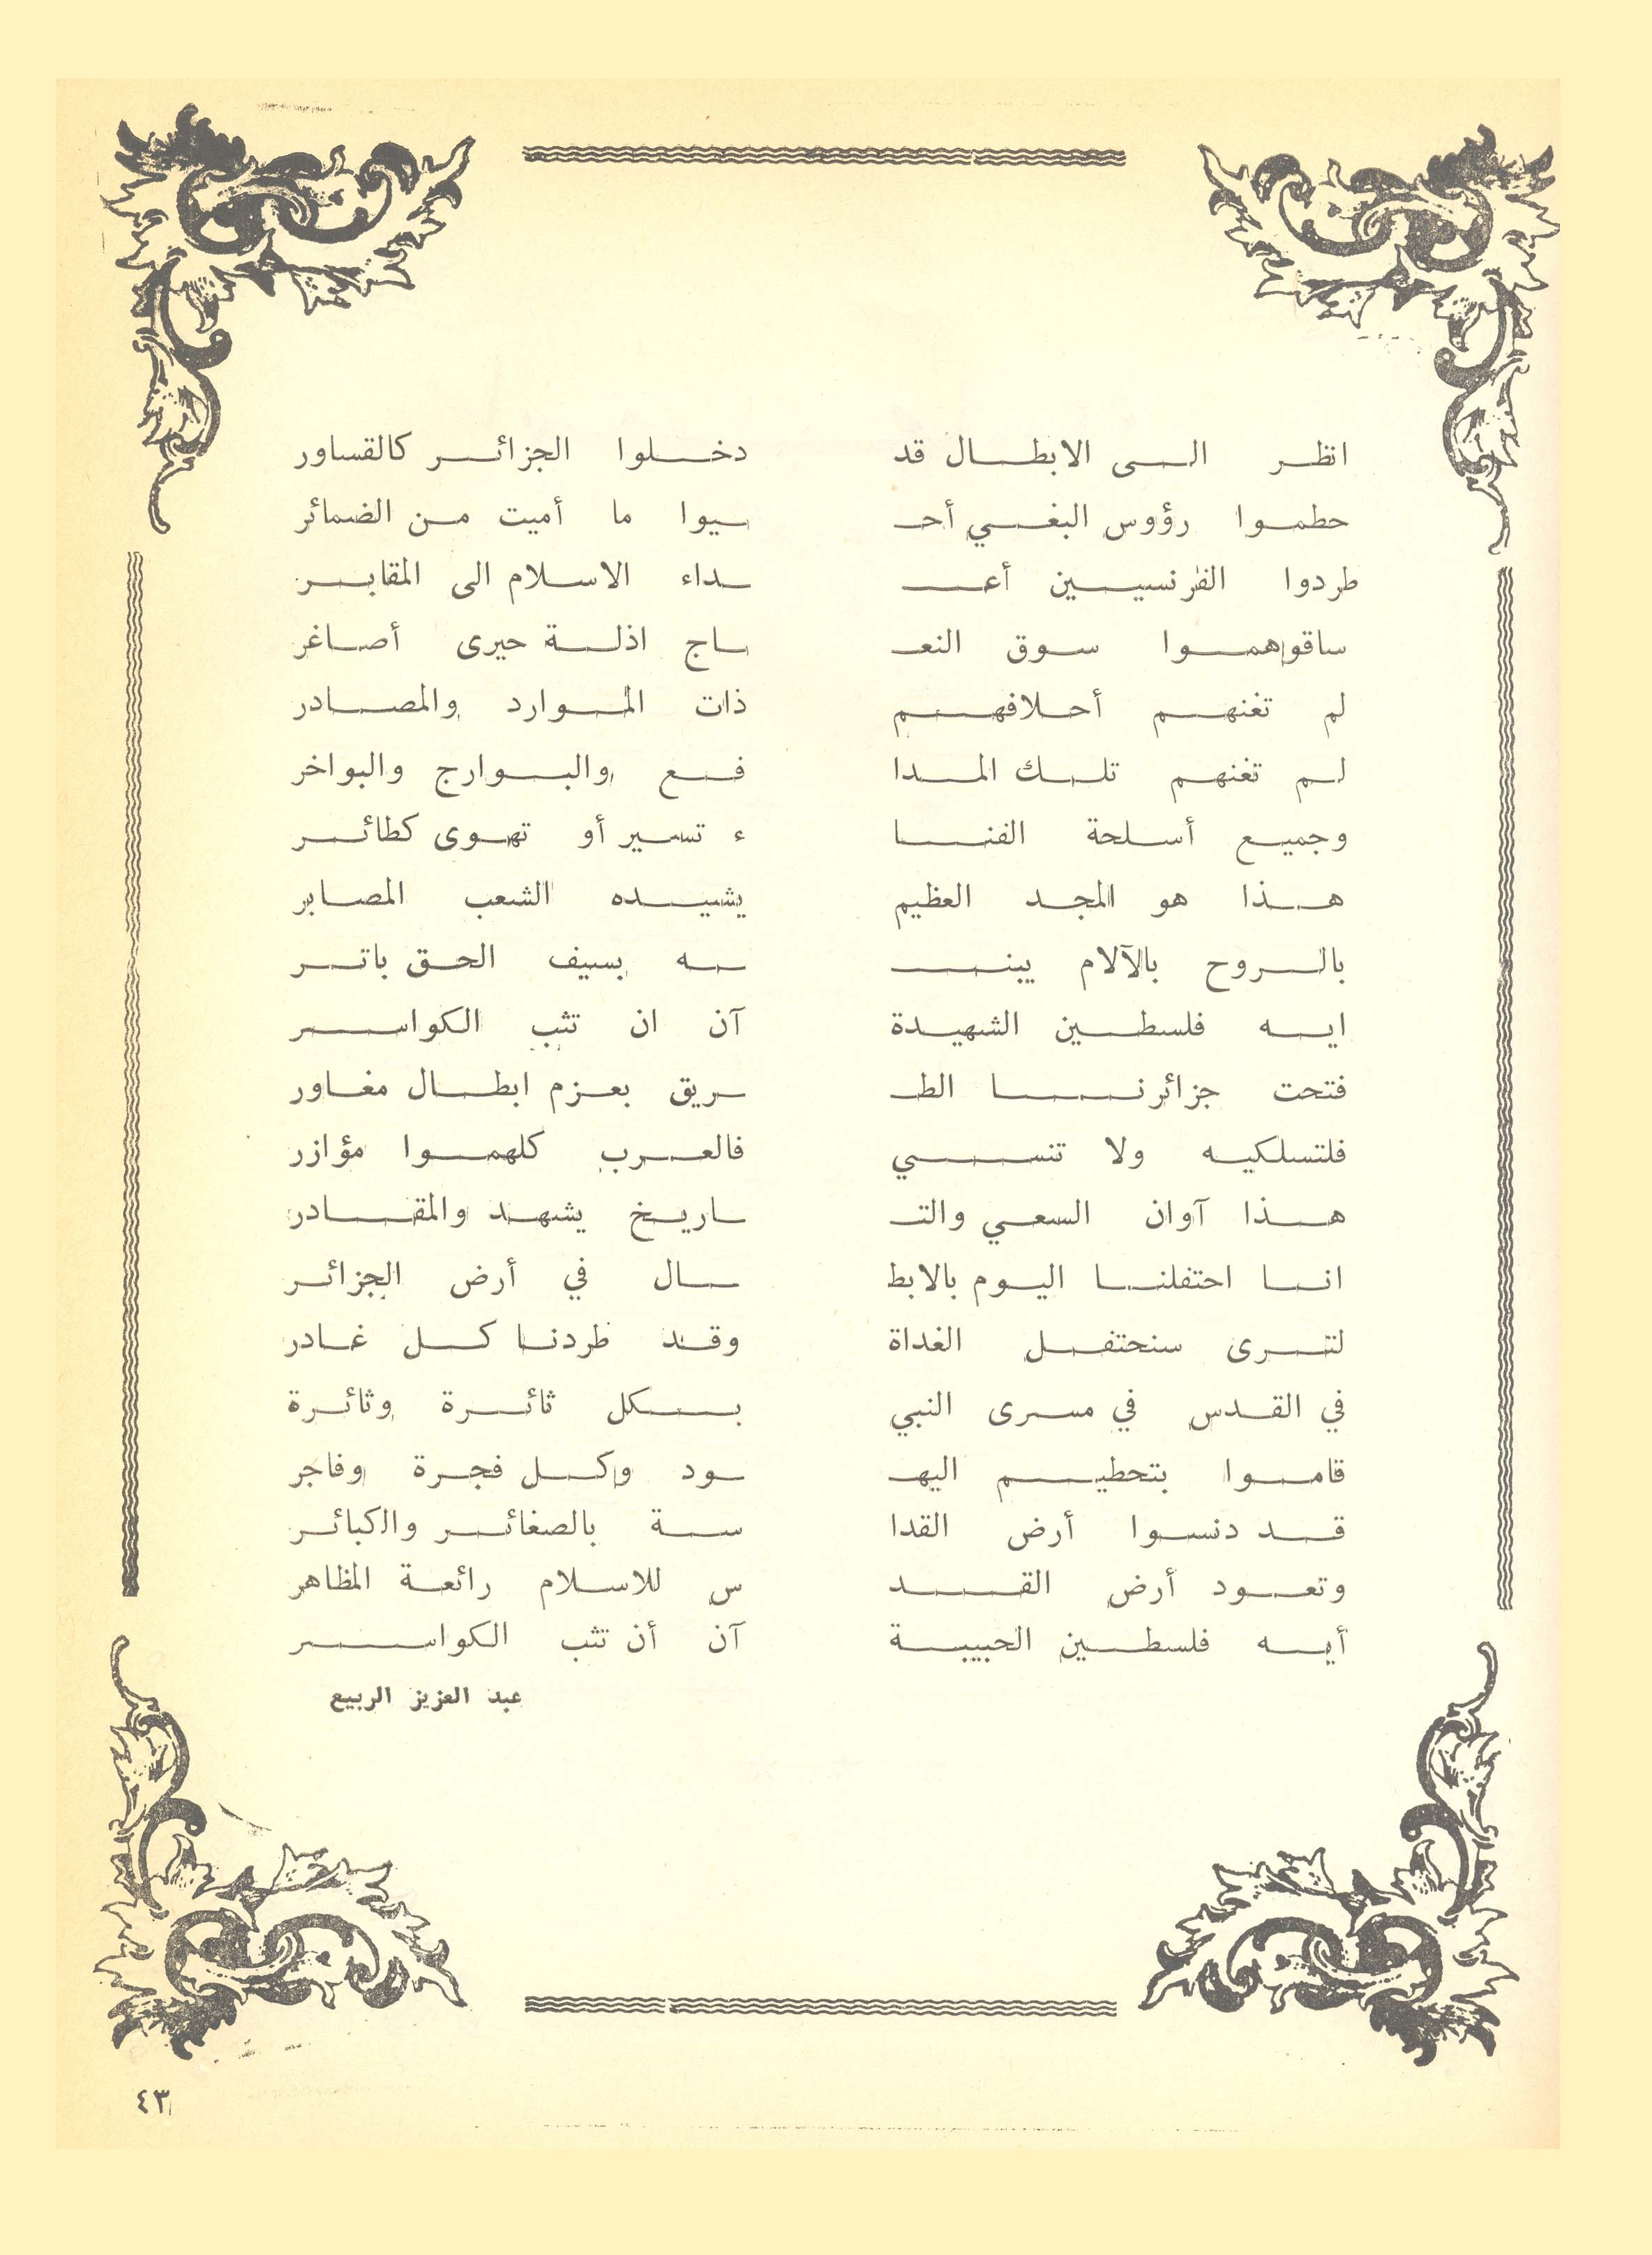 انظر الى الابطال قد دخلوا الجزائر كالقساور
حطموا رؤوس البغي أحـ ـيوا ما أميت من الضمائر
طردوا الفرنسيين أعـ ـداء الاسلام الى المقابر
ساقوهموا سوق النعـ ـاج اذلة حيرى أصاغر
لم تغنهم أحلافهم ذات الموارد والمصادر
لم تغنهم تلك المدا فع والبوارج والبواخر
وجميع أسلحة الفنا ء تسير أو تهوى كطائر
هذا هو المجد العظيم يشيده الشعب المصابر
بالروح بالآلام يبنـ ـه بسيف الحق باتر
ايه فلسطين الشهيدة آن ان تثب الكواسر
فتحت جزائرنا الطـ ـريق بعزم ابطال مغاور
فلتسلكيه ولا تنسي فالعرب كلهموا مؤازر
هذا آوان السعي والتـ ـاريخ يشهد والمقادر
انا احتفلنا اليوم بالابط ـال في أرض الجزائر
لترى سنحتفل الغداة وقد طردنا كل غادر
في القدس في مسرى النبي بكل ثائرة وثائرة
قاموا بتحطيم اليهـ ـود وكل فجرة وفاجر
قد دنسوا أرض القدا سة بالصغائر والكبائر
وتعود أرض القد س للاسلام رائعة المظاهر
أيه فلسطين الحبيبة آن أن تثب الكواسر
عبد العزيز الربيع
٤٣